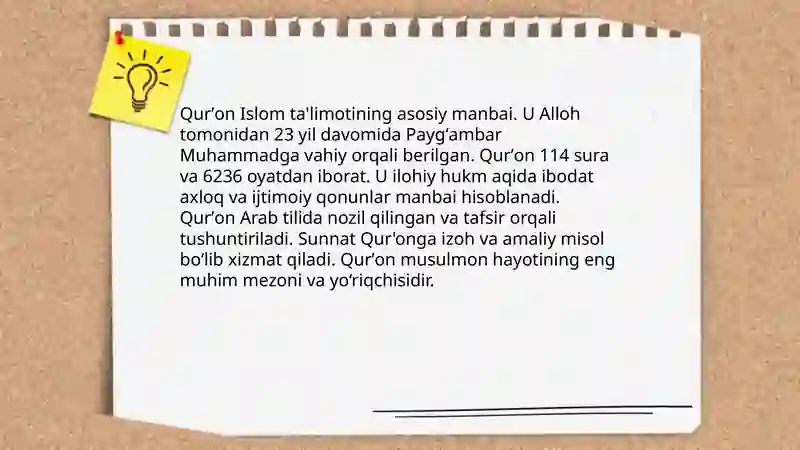 Qurʼon Islom ta'limotining asosiy manbai. U Alloh
tomonidan 23 yil davomida Paygʻambar
Muhammadga vahiy orqali berilgan. Qurʼon 114 sura
va 6236 oyatdan iborat. U ilohiy hukm aqida ibodat
axloq va ijtimoiy qonunlar manbai hisoblanadi.
Qurʼon Arab tilida nozil qilingan va tafsir orqali
tushuntiriladi. Sunnat Qur'onga izoh va amaliy misol
boʻlib xizmat qiladi. Qurʼon musulmon hayotining eng
muhim mezoni va yoʻriqchisidir.